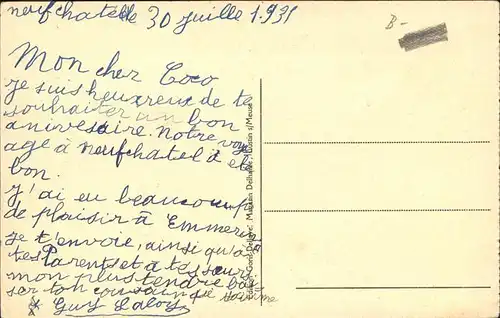 neufchatelle 30 juille 1.931
B-
Mon cher Coco
je suis heuxreux de te
souhaiter un bon
anivesaire. notre voy
age à neufchatel à et
bon.
J'ai eu beaucoup
de plaisir à Emmeri
je t'envoie, ainsi qu'à
tes Parents et a tes seurs
mon plus tendre bai
ser ton cousain qui taime
Guy Laloy